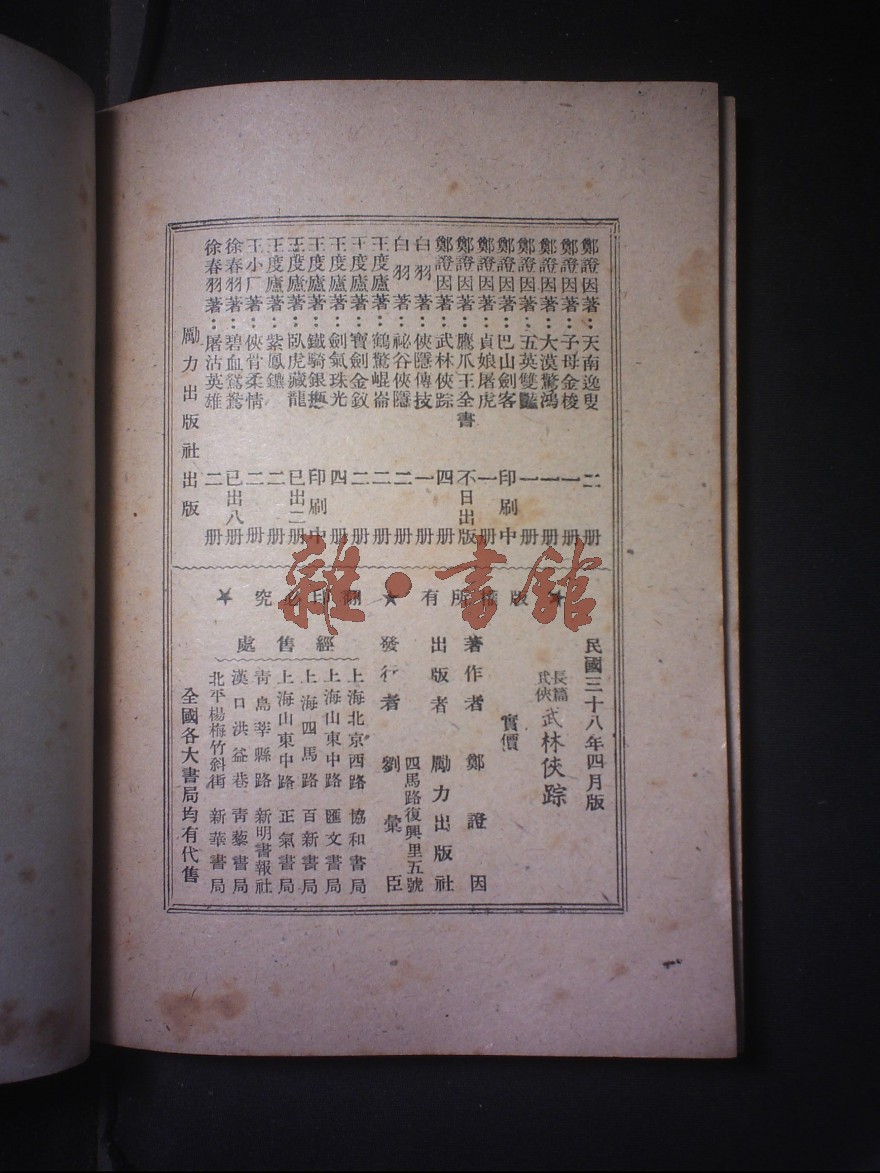 鄭證因著：天南逸叟　二册
鄭證因著：子母金梭　一册
鄭證因著：大漠驚鴻　一册
鄭證因著：五英雙艷　一册
鄭證因著：巴山劍客　印刷中
鄭證因著：貞娘屠虎　一册
鄭證因著：鷹爪王全書　不日出版
鄭證因著：武林俠踪　四册
白羽著：俠隱傳技　一册
白羽著：祕谷俠隱　二册
王度廬著：鶴驚崐崙　二册
王度廬著：寶劍金釵　二册
王度廬著：劍氣珠光　四册
王度廬著：鐵騎銀瓶　印刷中
王度廬著：臥虎藏龍　已出二册
王度廬著：紫鳳鑣　二册
王小厂著：俠骨柔情　二册
徐春羽著：碧血鴛鴦　已出八册
徐春羽著：屠沽英雄　二册
勵力出版社出版
★版權所有★翻印必究★
民國三十八年四月版
長篇武俠 武林俠踪
實價
著作者　鄭證因
出版者　勵力出版社
四馬路復興里五號
發行者　劉彙臣
經售處
上海北京西路　協和書局
上海山東中路　匯文書局
上海四馬路　百新書局
上海山東中路　正氣書局
靑島莘縣路　新明書報社
漢口洪益巷　靑藜書局
北平楊梅竹斜街　新華書局
全國各大書局均有代售
雜·書館